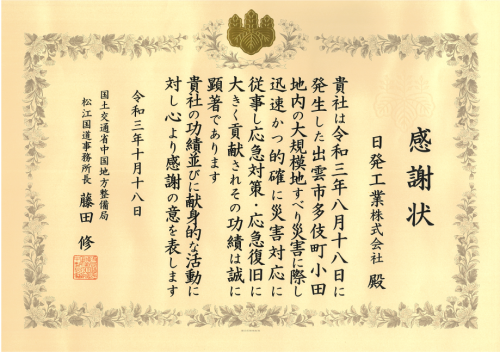 感謝状
日発工業株式会社 殿
貴社は令和三年八月十八日に
発生した出雲市多伎町小田
地内の大規模地すべり災害に際し
迅速かつ的確に災害対応に
従事し応急対策・応急復旧に
大きく貢献されその功績は誠に
顕著であります
貴社の功績並びに献身的な活動に
対し心より感謝の意を表します
令和三年十月十八日
国土交通省中国地方整備局
松江国道事務所長 藤田 修